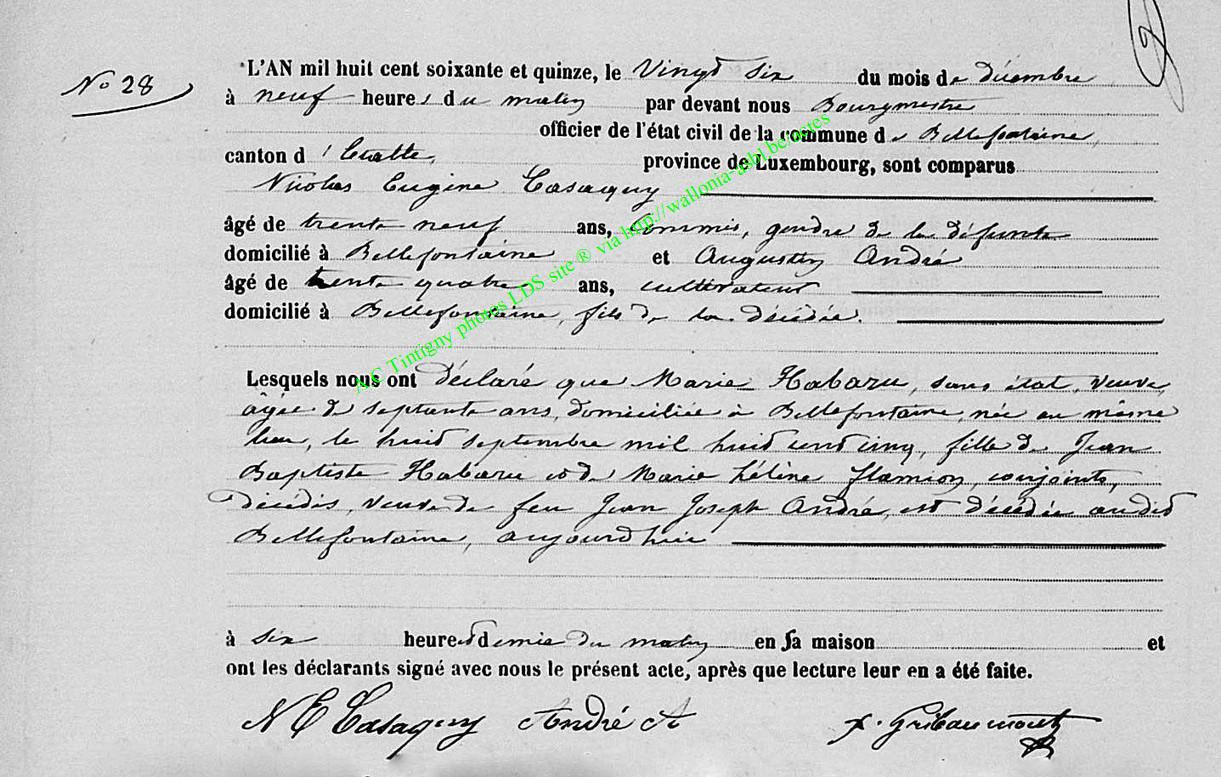 No 28
L'AN mil huit cent soixante et quinze, le Vingt Six du mois de Décembre
à neuf heures du matin par devant nous Bourgmestre
officier de l'état civil de la commune de Bellefontaine,
canton d'Etalle, province de Luxembourg, sont comparus
Nicolas Eugène Casaquy
âgé de trente neuf ans, commis, gendre de la défunte
domicilié à Bellefontaine et Augustin André
âgé de trente quatre ans, cultivateur
domicilié à Bellefontaine, fils de la décédée.
Lesquels nous ont déclaré que Marie Habaru, sans état, veuve,
âgée de septante ans, domiciliée à Bellefontaine, née au même
lieu, le huit septembre mil huit cent cinq, fille de Jean
Baptiste Habaru et de Marie Hélène Flamion, conjoints,
décédés, veuve de feu Jean Joseph André, est décédée audit
Bellefontaine, aujourd'hui
à six heures et demie du matin en sa maison et
ont les déclarants signé avec nous le présent acte, après que lecture leur en a été faite.
N E Casaquy André A F. Gribaumont
A.C Tintigny photos LDS site ® via http://wallonia-asbl.be/actes